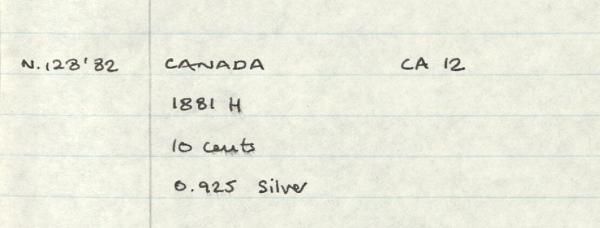 N.128'82 CANADA CA 12
1881 H
10 cents
0.925 Silver